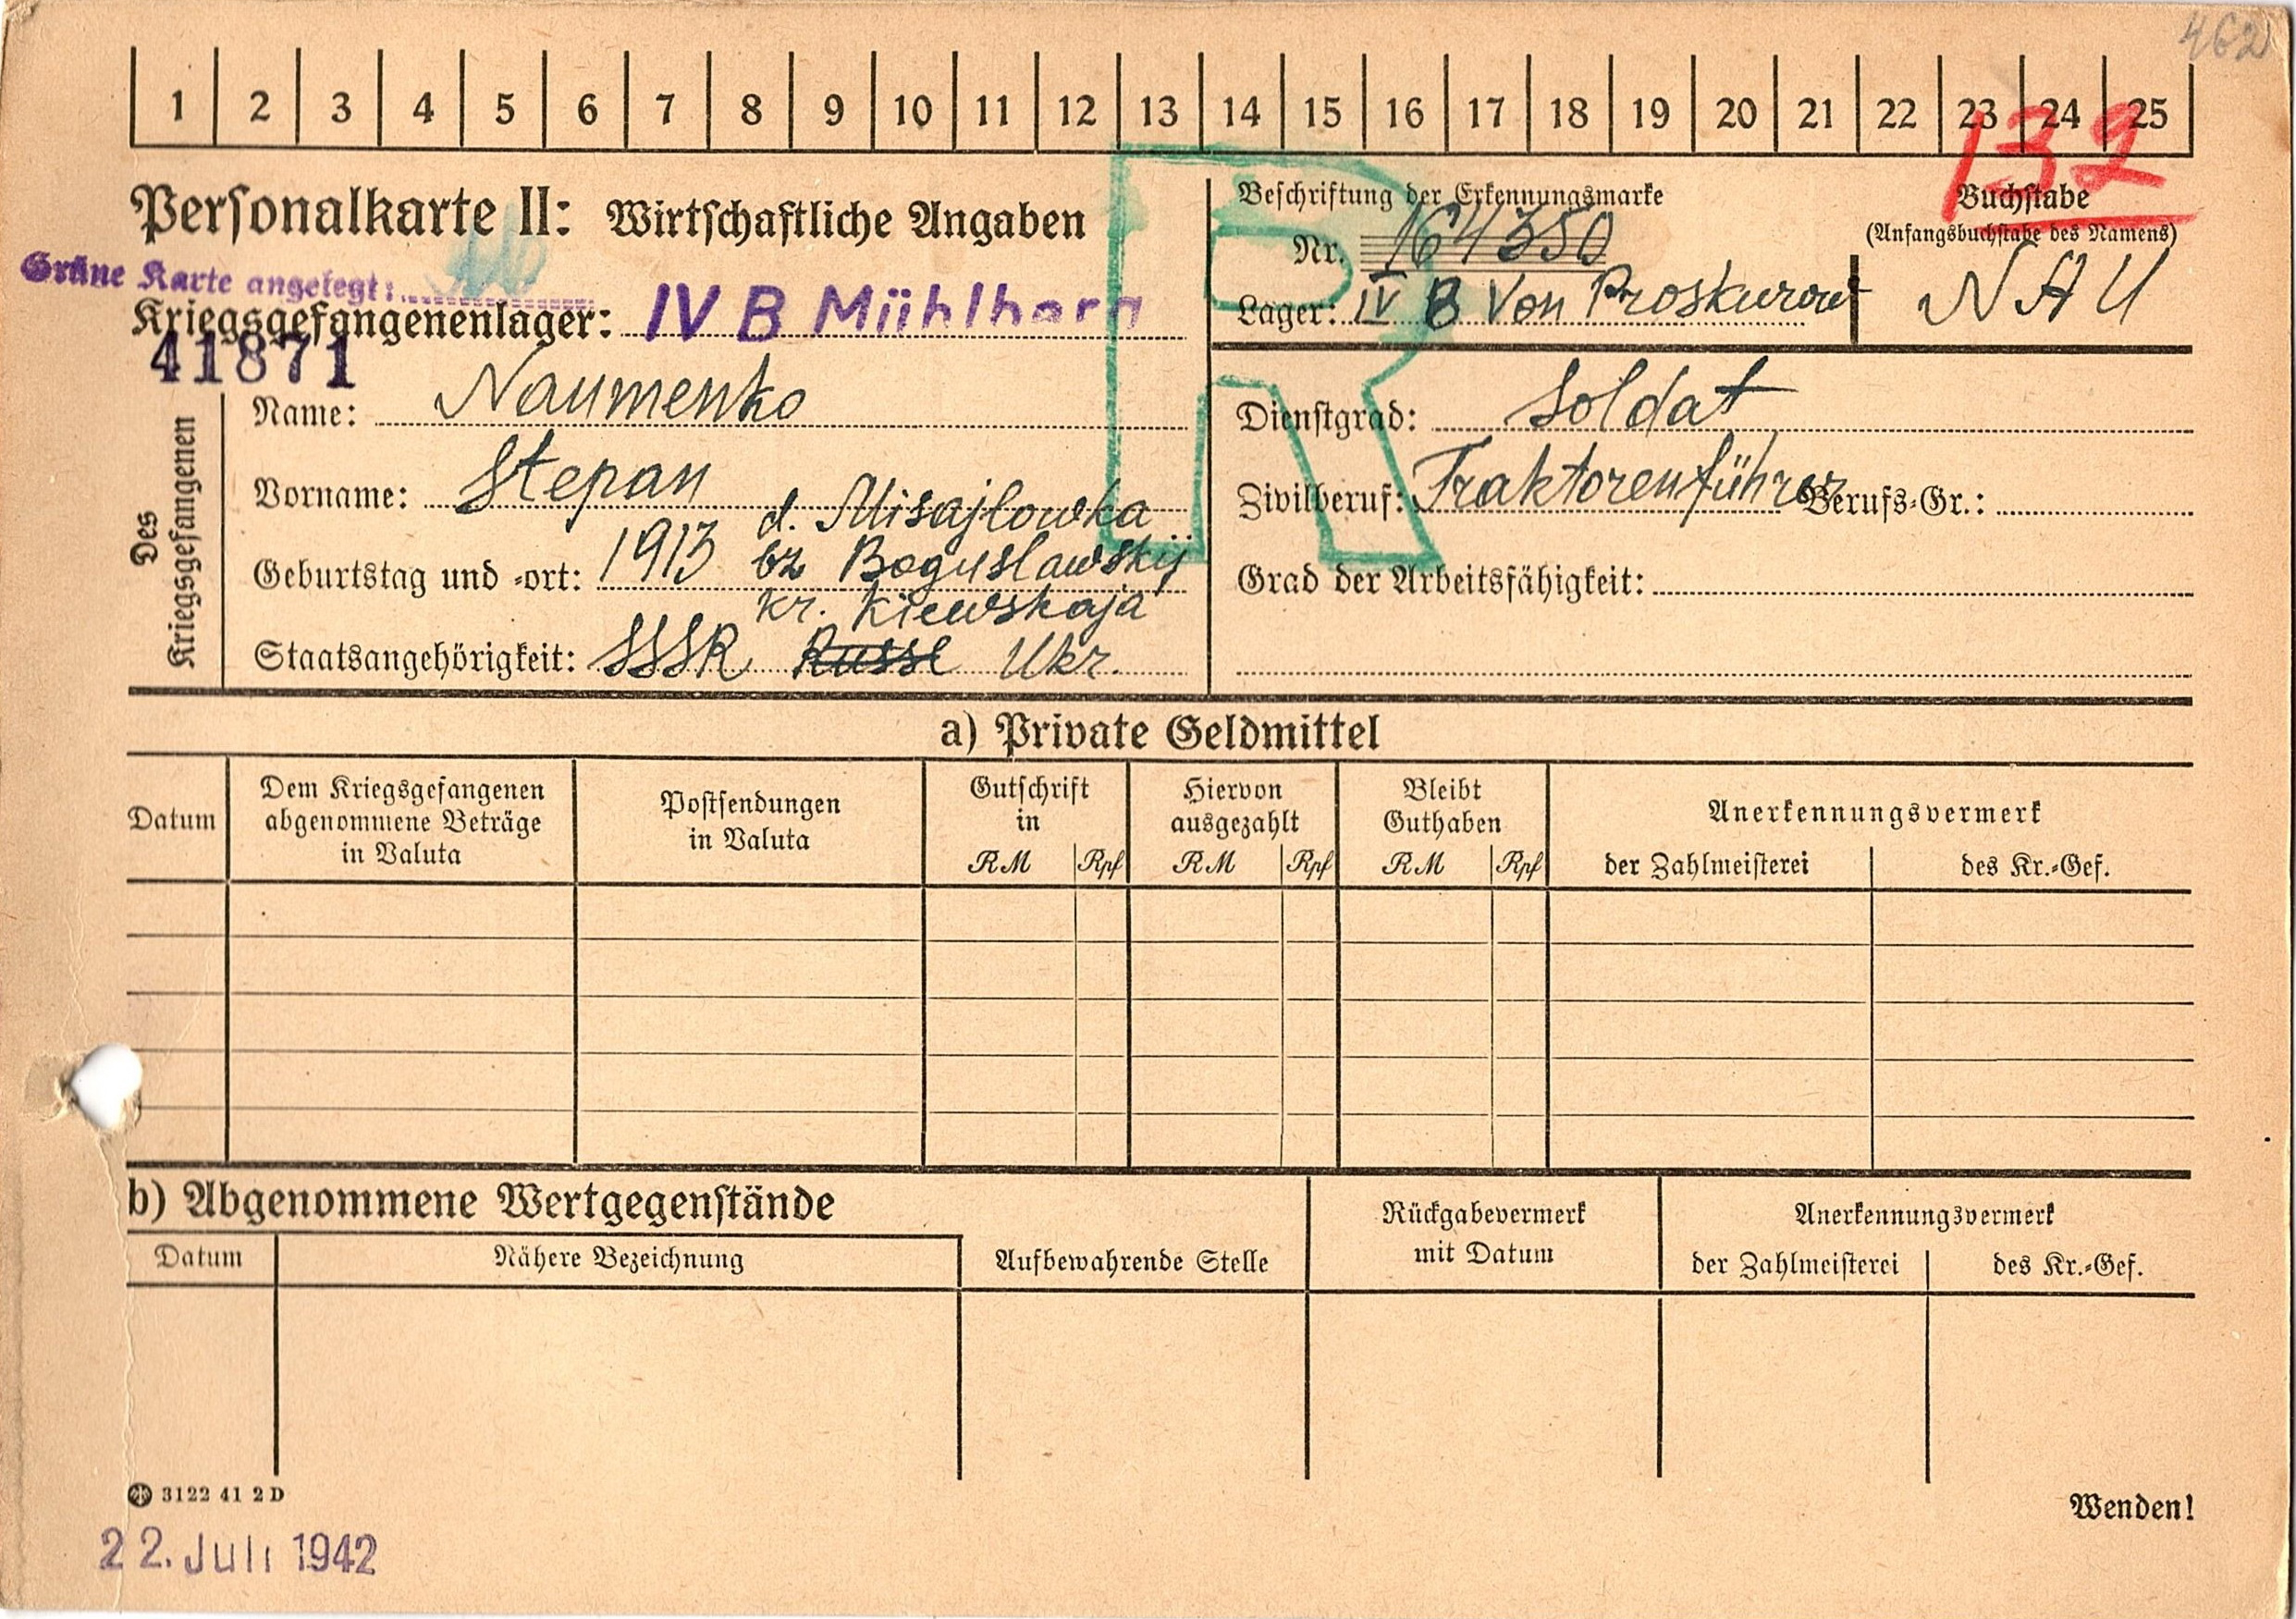 462
1 2 3 4 5 6 7 8 9 10 11 12 13 14 15 16 17 18 19 20 21 22 23 24 25
132
Personalkarte II: Wirtschaftliche Angaben
Grüne Karte angelegt:
Kriegsgefangenenlager: IV B Mühlberg
41871
Beschriftung der Erkennungsmarke
Nr. 164350
Lager: IV B Von Proskurow
Buchstabe
(Anfangsbuchstabe des Namens)
NAU
R
Des Kriegsgefangenen
Name: Naumenko
Vorname: Stepan
Geburtstag und -ort: 1913 d. Misajlowka
bz Boguslawskij
kr. Kiewskaja
Staatsangehörigkeit: SSSR Russe Ukr.
Dienstgrad: Soldat
Zivilberuf: Traktorenführer Berufs-Gr.:
Grad der Arbeitsfähigkeit:
a) Private Geldmittel
Datum
Dem Kriegsgefangenen
abgenommene Beträge
in Valuta
Postsendungen
in Valuta
Gutschrift
in
RM Rpf
Hiervon
ausgezahlt
RM Rpf
Bleibt
Guthaben
RM Rpf
Anerkennungsvermerk
der Zahlmeisterei des Kr.-Gef.
b) Abgenommene Wertgegenstände
Datum Nähere Bezeichnung
Aufbewahrende Stelle
Rückgabevermerk
mit Datum
Anerkennungsvermerk
der Zahlmeisterei des Kr.-Gef.
3122 41 2 D
Wenden!
22. Juli 1942